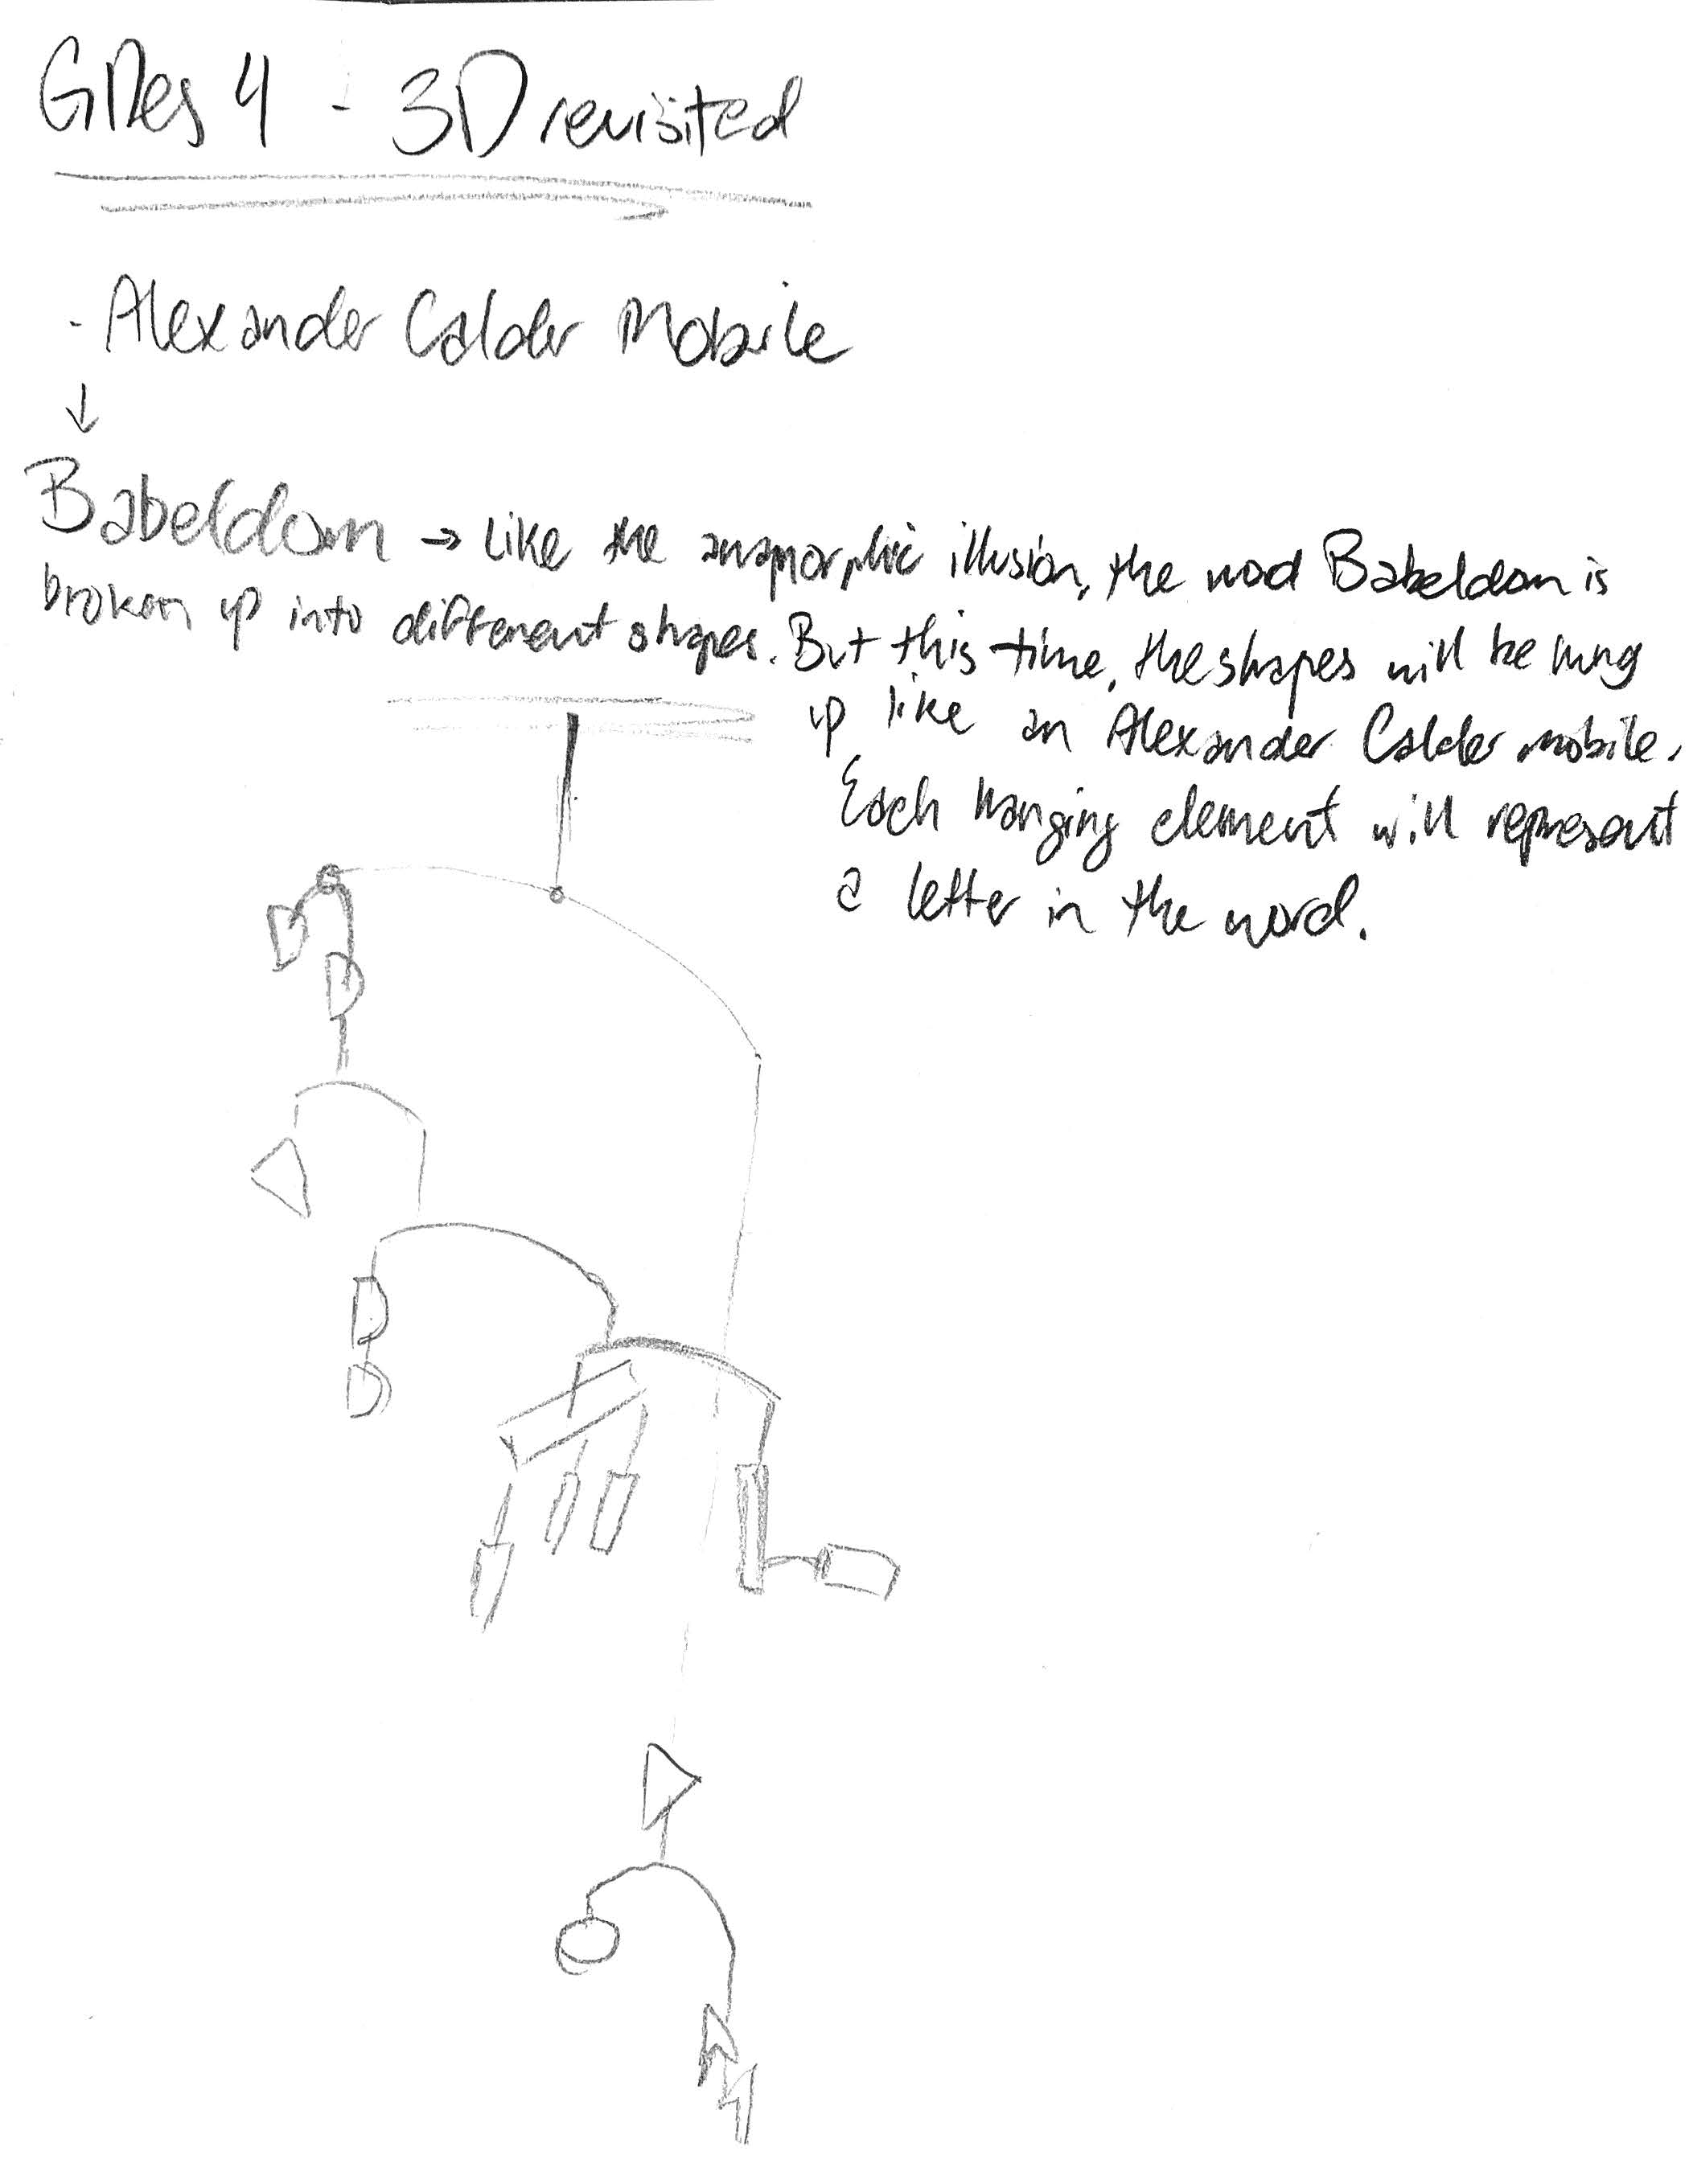 GDes 4 - 3D revisited
- Alexander Calder Mobile
↓
Babeldom → Like the anamorphic illusion, the word Babeldom is
broken up into different shapes. But this time, the shapes will be hung
up like an Alexander Calder mobile.
Each hanging element will represent
a letter in the word.